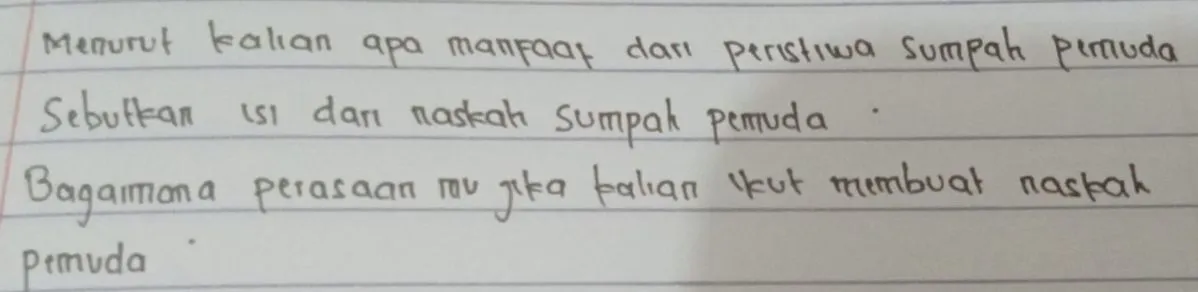 Menurut kalian apa manfaat dari peristiwa sumpah pemuda
Sebutkan isi dari naskah sumpah pemuda .
Bagaimana perasaan mu jika kalian ikut membuat naskah
pemuda